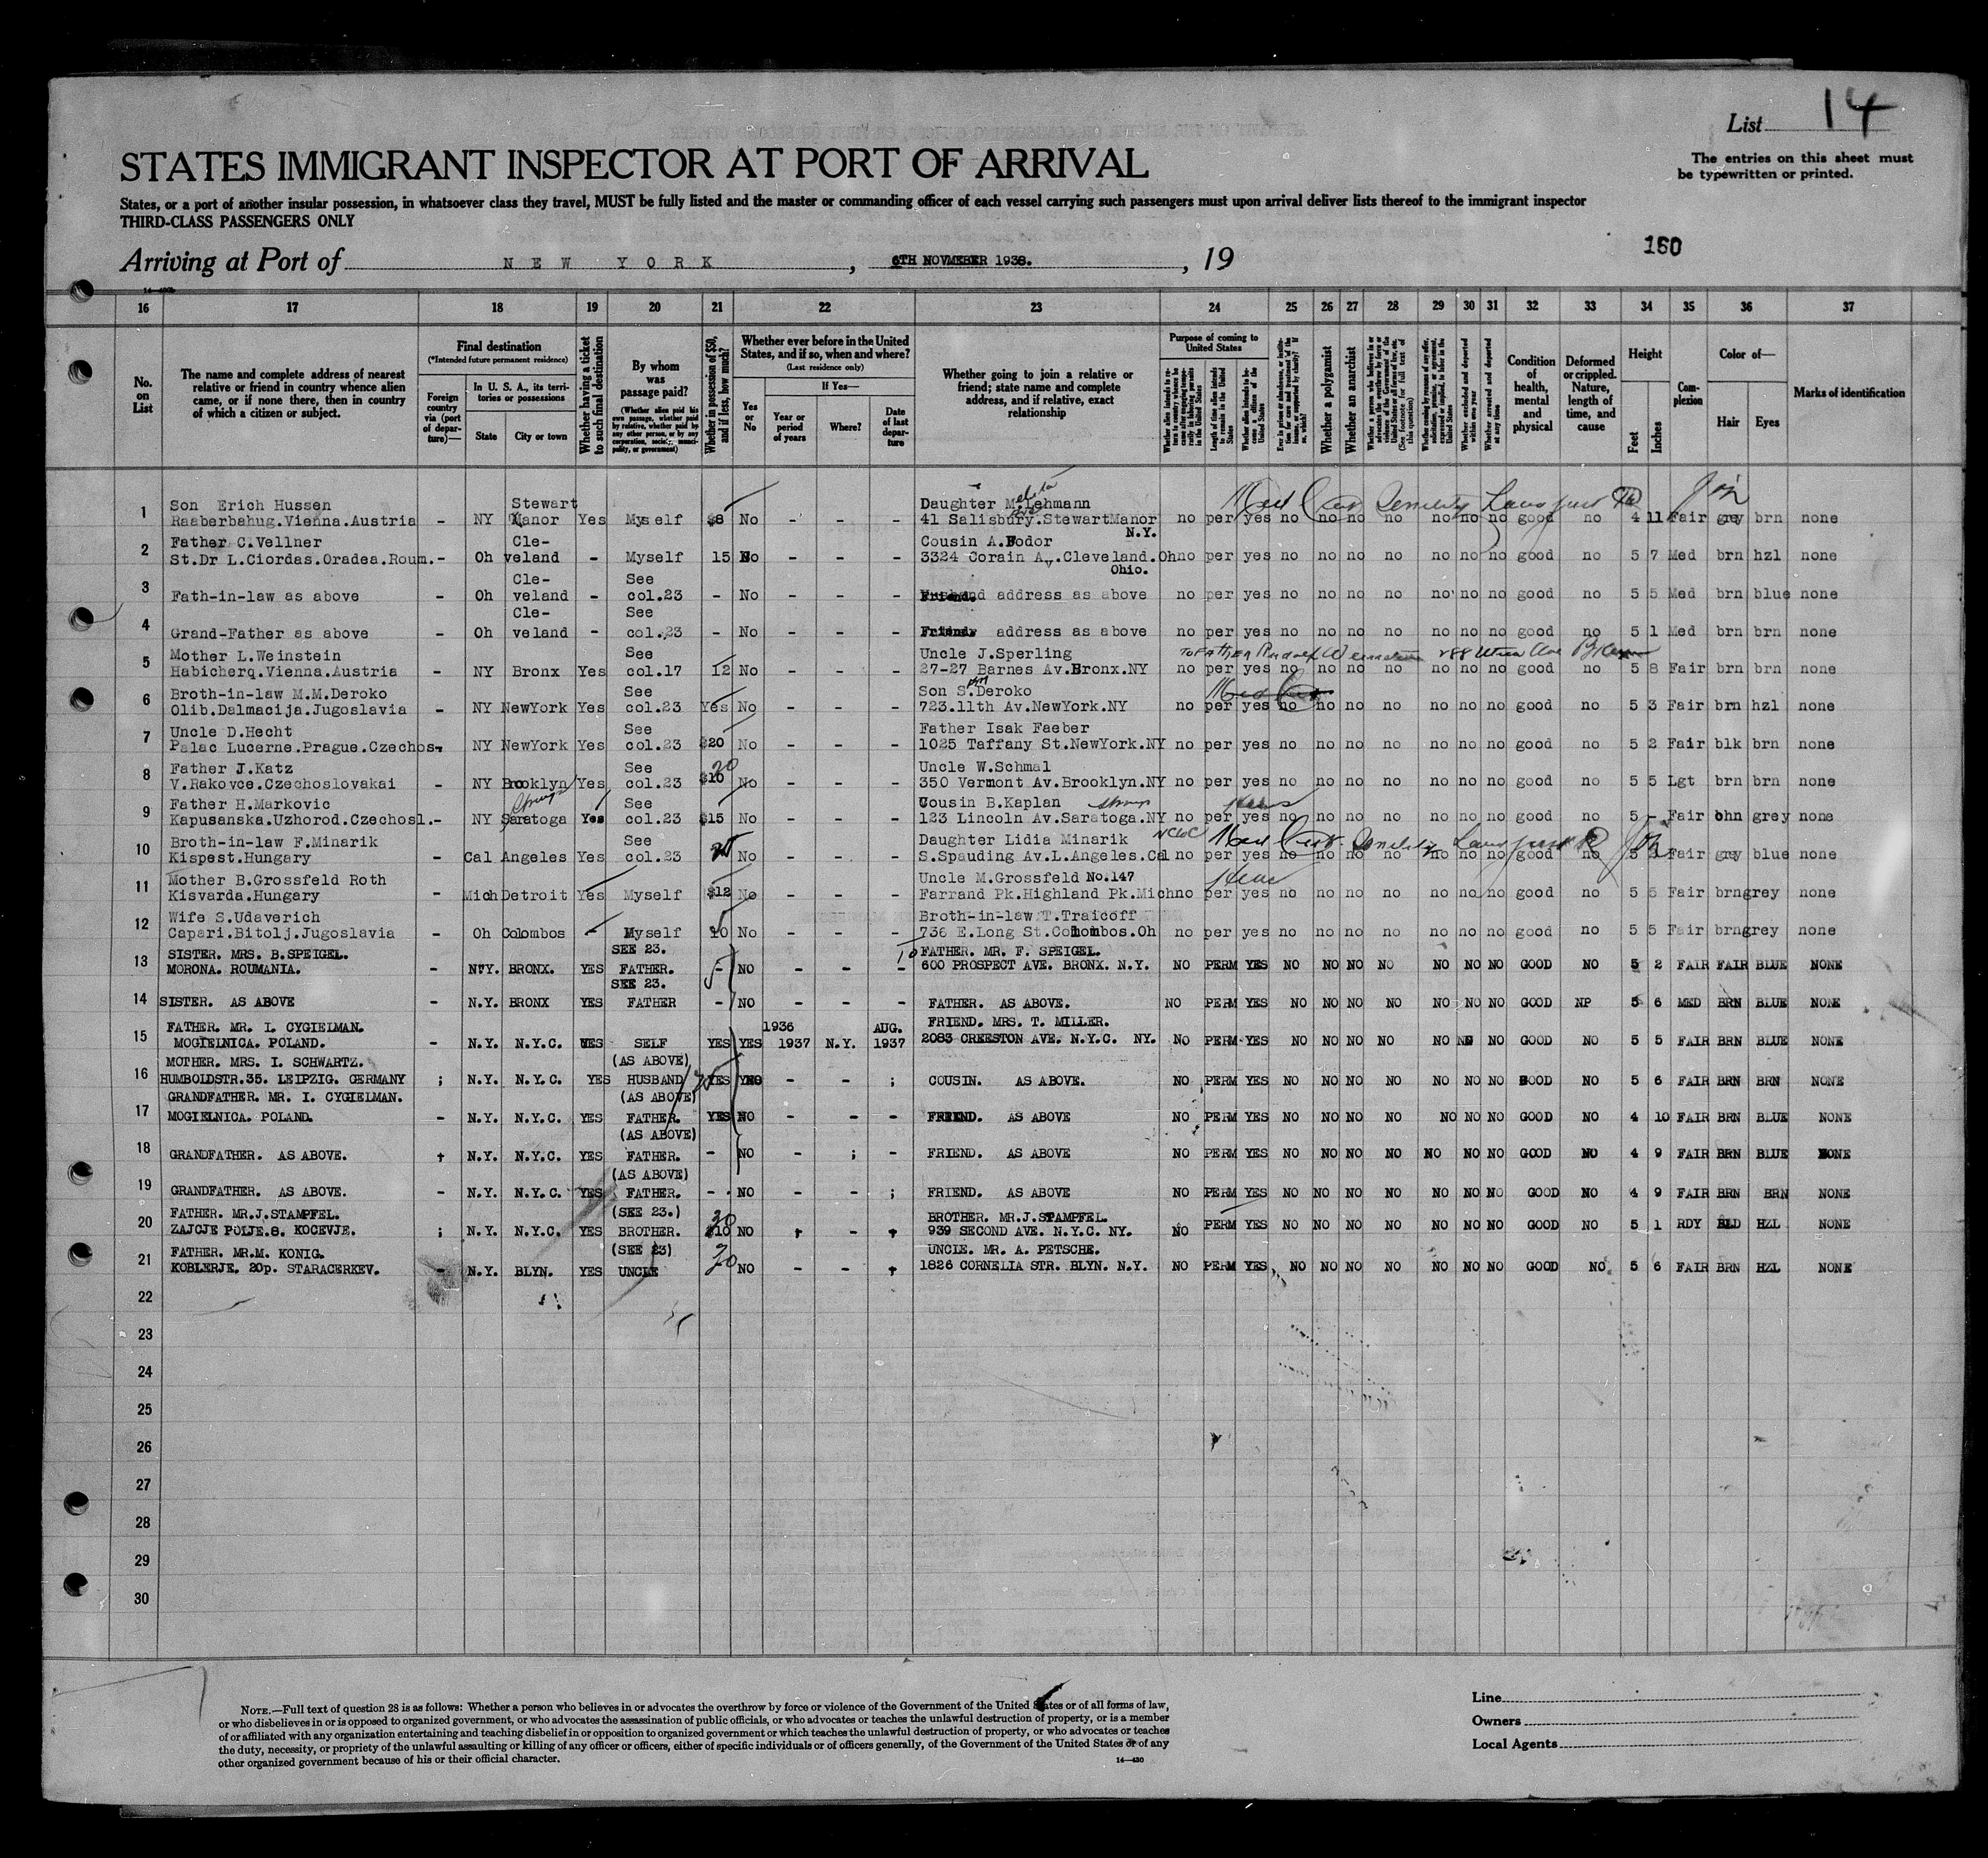 List 14
STATES IMMIGRANT INSPECTOR AT PORT OF ARRIVAL
The entries on this sheet must
be typewritten or printed.
States, or a port of another insular possession, in whatsoever class they travel, MUST be fully listed and the master or commanding officer of each vessel carrying such passengers must upon arrival deliver lists thereof to the immigrant inspector
THIRD-CLASS PASSENGERS ONLY
160
Arriving at Port of NEW YORK, 6TH NOVMEBER 1938., 19
16 17 18 19 20 21 22 23 24 25 26 27 28 29 30 31 32 33 34 35 36 37
No. on List
The name and complete address of nearest relative or friend in country whence alien came, or if none there, then in country of which a citizen or subject.
Final destination
(*Intended future permanent residence)
Foreign country via (port of departure)—
In U. S. A., its territories or possessions
State
City or town
Whether having a ticket to such final destination
By whom was passage paid?
(Whether alien paid his own passage, whether paid by relative, whether paid by any other person, or by any corporation, society, municipality, or government)
Whether in possession of $50, and if less, how much?
Whether ever before in the United States, and if so, when and where?
(Last residence only)
Yes or No
If Yes—
Year or period of years
Where?
Date of last departure
Whether going to join a relative or friend; state name and complete address, and if relative, exact relationship
Purpose of coming to United States
Length of time alien intends to remain in the United States
Whether alien intends to become a citizen of the United States
Whether a polygamist
Whether an anarchist
(See footnote for full text of this question)
Whether excluded and deported within one year
Whether arrested and deported at any time
Condition of health, mental and physical
Deformed or crippled. Nature, length of time, and cause
Height
Feet
Inches
Complexion
Color of—
Hair
Eyes
Marks of identification
1 Son Erich Hussen Stewart Daughter M. Lehmann
Raaberbahug.Vienna.Austria - NY Manor Yes Myself $8 No - - - 41 Salisbury.StewartManor no per yes no no no no no no no good no 4 11 Fair grey brn none
N.Y.
2 Father C.Vellner Cle- Cousin A.Fodor
St.Dr L.Ciordas.Oradea.Roum.- Oh veland - Myself 15 No - - - 3324 Corain A,.Cleveland.Oh no per yes no no no no no no no good no 5 7 Med brn hzl none
Ohio.
3 Cle- See
Fath-in-law as above - Oh veland - col.23 - No - - - address as above no per yes no no no no no no no good no 5 5 Med brn blue none
4 Cle- See
Grand-Father as above - Oh veland - col.23 - No - - - address as above no per yes no no no no no no no good no 5 1 Med brn brn none
5 Mother L.Weinstein See Uncle J.Sperling
Habicherq.Vienna.Austria - NY Bronx Yes col.17 12 No - - - 27-27 Barnes Av.Bronx.NY no per yes no no no no no no no good no 5 8 Fair brn brn none
6 Broth-in-law M.M.Deroko See Son S.Deroko
Olib.Dalmacija.Jugoslavia - NY NewYork Yes col.23 Yes No - - - 723.11th Av.NewYork.NY no per yes no no no no no no no good no 5 3 Fair brn hzl none
7 Uncle D.Hecht See Father Isak Faeber
Palac Lucerne.Prague.Czechos- NY NewYork Yes col.23 $20 No - - - 1025 Taffany St.NewYork.NY no per yes no no no no no no no good no 5 2 Fair blk brn none
8 Father J.Katz See 20 Uncle W.Schmal
V.Rakovce.Czechoslovakai - NY Brooklyn Yes col.23 $10 No - - - 350 Vermont Av.Brooklyn.NY no per yes no no no no no no no good no 5 5 Lgt brn brn none
9 Father H.Markovic Springs See Cousin B.Kaplan
Kapusanska.Uzhorod.Czechosl.- NY Saratoga Yes col.23 $15 No - - - 123 Lincoln Av.Saratoga.NY no per yes no no no no no no no good no 5 - Fair bhn grey none
10 Broth-in-law F.Minarik See Daughter Lidia Minarik
Kispest.Hungary - Cal Angeles Yes col.23 No - - - S.Spauding Av.L.Angeles.Cal no per yes no no no no no no no good no 5 Fair grey blue none
11 Mother B.Grossfeld Roth Uncle M.Grossfeld No.147
Kisvarda.Hungary - Mich Detroit Yes Myself $12 No - - - Farrand Pk.Highland Pk.Mich no per yes no no no no no no no good no 5 5 Fair brn grey none
12 Wife S.Udaverich Broth-in-law T.Traicoff
Capari.Bitolj.Jugoslavia - Oh Colombos - Myself No - - - 736 E.Long St.Colombos.Oh no per yes no no no no no no no good no 5 5 Fair brn grey none
13 SISTER. MRS. B.SPEIGEL. SEE 23. To FATHER. MR. F. SPEIGEL.
MORONA. ROUMANIA. - N.Y. BRONX. YES FATHER. - NO - - - 600 PROSPECT AVE. BRONX. N.Y. NO PERM YES NO NO NO NO NO NO NO GOOD NO 5 2 FAIR FAIR BLUE NONE
SEE 23.
14 SISTER. AS ABOVE - N.Y. BRONX YES FATHER - NO - - - FATHER. AS ABOVE. NO PERM YES NO NO NO NO NO NO NO GOOD NP 5 6 MED BRN BLUE NONE
15 FATHER. MR. I. CYGIELMAN. 1936 AUG. FRIEND. MRS. T. MILLER.
MOGIELNICA. POLAND. - N.Y. N.Y.C. YES SELF YES YES 1937 N.Y. 1937 2083 CREESTON AVE. N.Y.C. NY. NO PERM YES NO NO NO NO NO NO NO GOOD NO 5 5 FAIR BRN BLUE NONE
16 MOTHER. MRS. I. SCHWARTZ. (AS ABOVE)
HUMBOLDSTR.35. LEIPZIG. GERMANY ; N.Y. N.Y.C. YES HUSBAND YES NO - - ; COUSIN. AS ABOVE. NO PERM YES NO NO NO NO NO NO NO GOOD NO 5 6 FAIR BRN BRN NONE
17 GRANDFATHER. MR. I. CYGIELMAN. (AS ABOVE)
MOGIELNICA. POLAND. - N.Y. N.Y.C. YES FATHER. YES NO - - - FRIEND. AS ABOVE NO PERM YES NO NO NO NO NO NO NO GOOD NO 4 10 FAIR BRN BLUE NONE
18 (AS ABOVE)
GRANDFATHER. AS ABOVE. N.Y. N.Y.C. YES FATHER. - NO - ; - FRIEND. AS ABOVE NO PERM YES NO NO NO NO NO NO NO GOOD NO 4 9 FAIR BRN BLUE NONE
19 (AS ABOVE)
GRANDFATHER. AS ABOVE. - N.Y. N.Y.C. YES FATHER. - NO - - ; FRIEND. AS ABOVE NO PERM YES NO NO NO NO NO NO NO GOOD NO 4 9 FAIR BRN BRN NONE
20 FATHER. MR.J.STAMPFEL. (SEE 23.) 20 BROTHER. MR.J.STAMPFEL.
ZAJCJE POLJE.8. KOCEVJE. ; N.Y. N.Y.C. YES BROTHER. $10 NO - 939 SECOND AVE. N.Y.C. NY. NO PERM YES NO NO NO NO NO NO NO GOOD NO 5 1 RDY BLD HZL NONE
21 FATHER. MR.M. KONIG. (SEE 23) UNCLE. MR. A. PETSCHE.
KOBLERJE. 20p. STARACERKEV. - N.Y. BLYN. YES UNCLE 20 NO - - 1826 CORNELIA STR. BLYN. N.Y. NO PERM YES NO NO NO NO NO NO NO GOOD NO 5 6 FAIR BRN HZL NONE
22
23
24
25
26
27
28
29
30
NOTE.—Full text of question 28 is as follows: Whether a person who believes in or advocates the overthrow by force or violence of the Government of the United States or of all forms of law,
or who disbelieves in or is opposed to organized government, or who advocates the assassination of public officials, or who advocates or teaches the unlawful destruction of property, or is a member
of or affiliated with any organization entertaining and teaching disbelief in or opposition to organized government or which teaches the unlawful destruction of property, or who advocates or teaches
the duty, necessity, or propriety of the unlawful assaulting or killing of any officer or officers, either of specific individuals or of officers generally, of the Government of the United States or of any
other organized government because of his or their official character.
14—430
Line
Owners
Local Agents